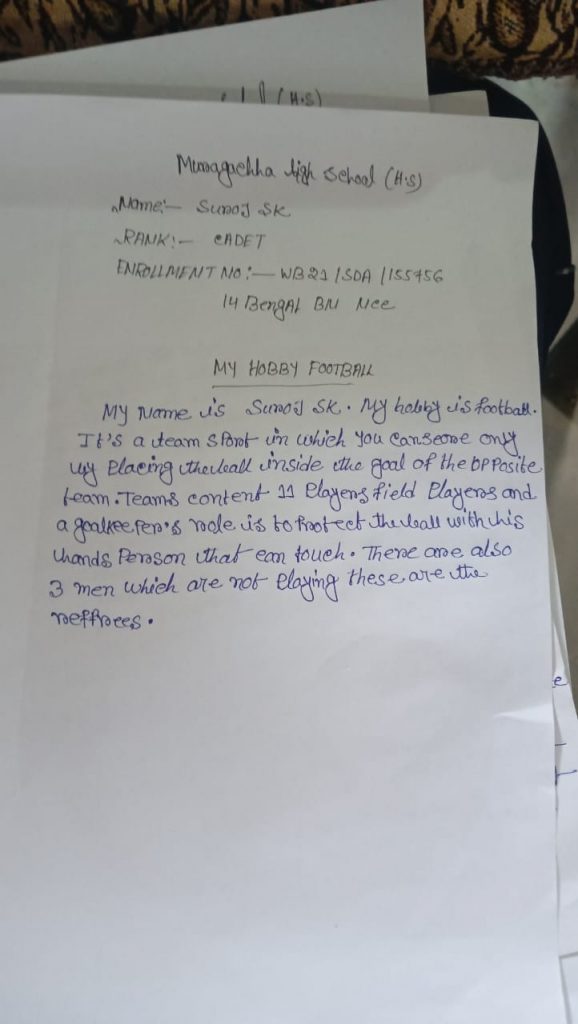 (H.S)
Muragachha High School (H.S)
Name:- Suroj SK
RANK:- CADET
ENROLLMENT NO:- WB21/SDA/155456
14 Bengal BN Ncc
MY HOBBY FOOTBALL
My Name is Suroj SK. My hobby is football.
It's a team sport in which you canscore only
by Placing the ball inside the goal of the opposite
team. Teams content 11 Players field Players and
a goalkeeper's role is to Protect the ball with his
hands Person that can touch. There are also
3 men which are not Playing these are the
reffrees.